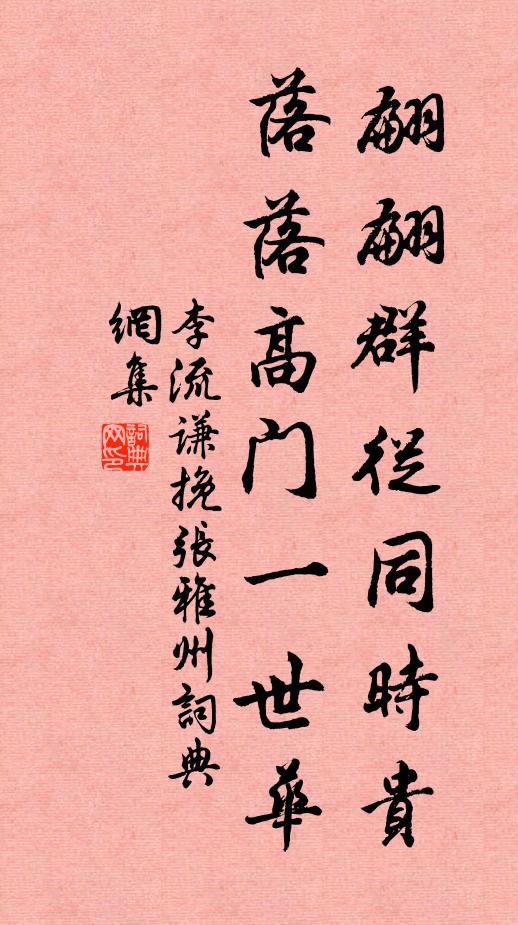 翩翩群從同時貴
落落高門一世華
李流謙挽張雅州詞典
網集
詞典網印